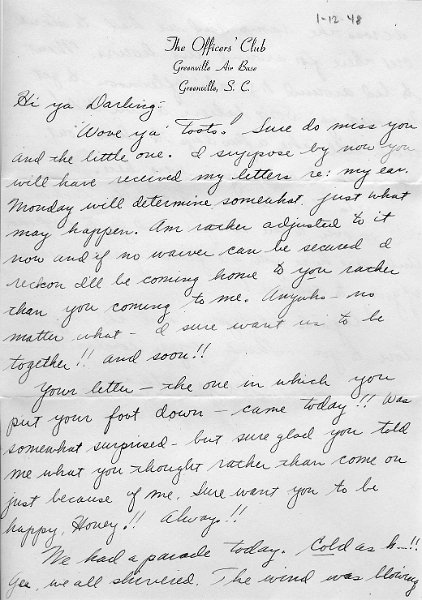 1-12-48
The Officers' Club
Greenville Air Base
Greenville, S. C.
Hi ya Darling:-
'Wove ya' Toots! Sure do miss you
and the little one. I suppose by now you
will have received my letters re: my ear.
Monday will determine somewhat just what
may happen. Am rather adjusted to it
now and if no waiver can be secured I
reckon I'll be coming home to you rather
than you coming to me. Anyuhs - no
matter what - I sure want us to be
together!! and soon!!
Your letter - the one in which you
put your foot down - came today!!! Was
somewhat surprised - but sure glad you told
me what you thought rather than come on
just because of me. Sure want you to be
happy, Honey!!! Always!!
We had a parade today. Cold as h--!!
Gee, we all shivered. The wind was blowing